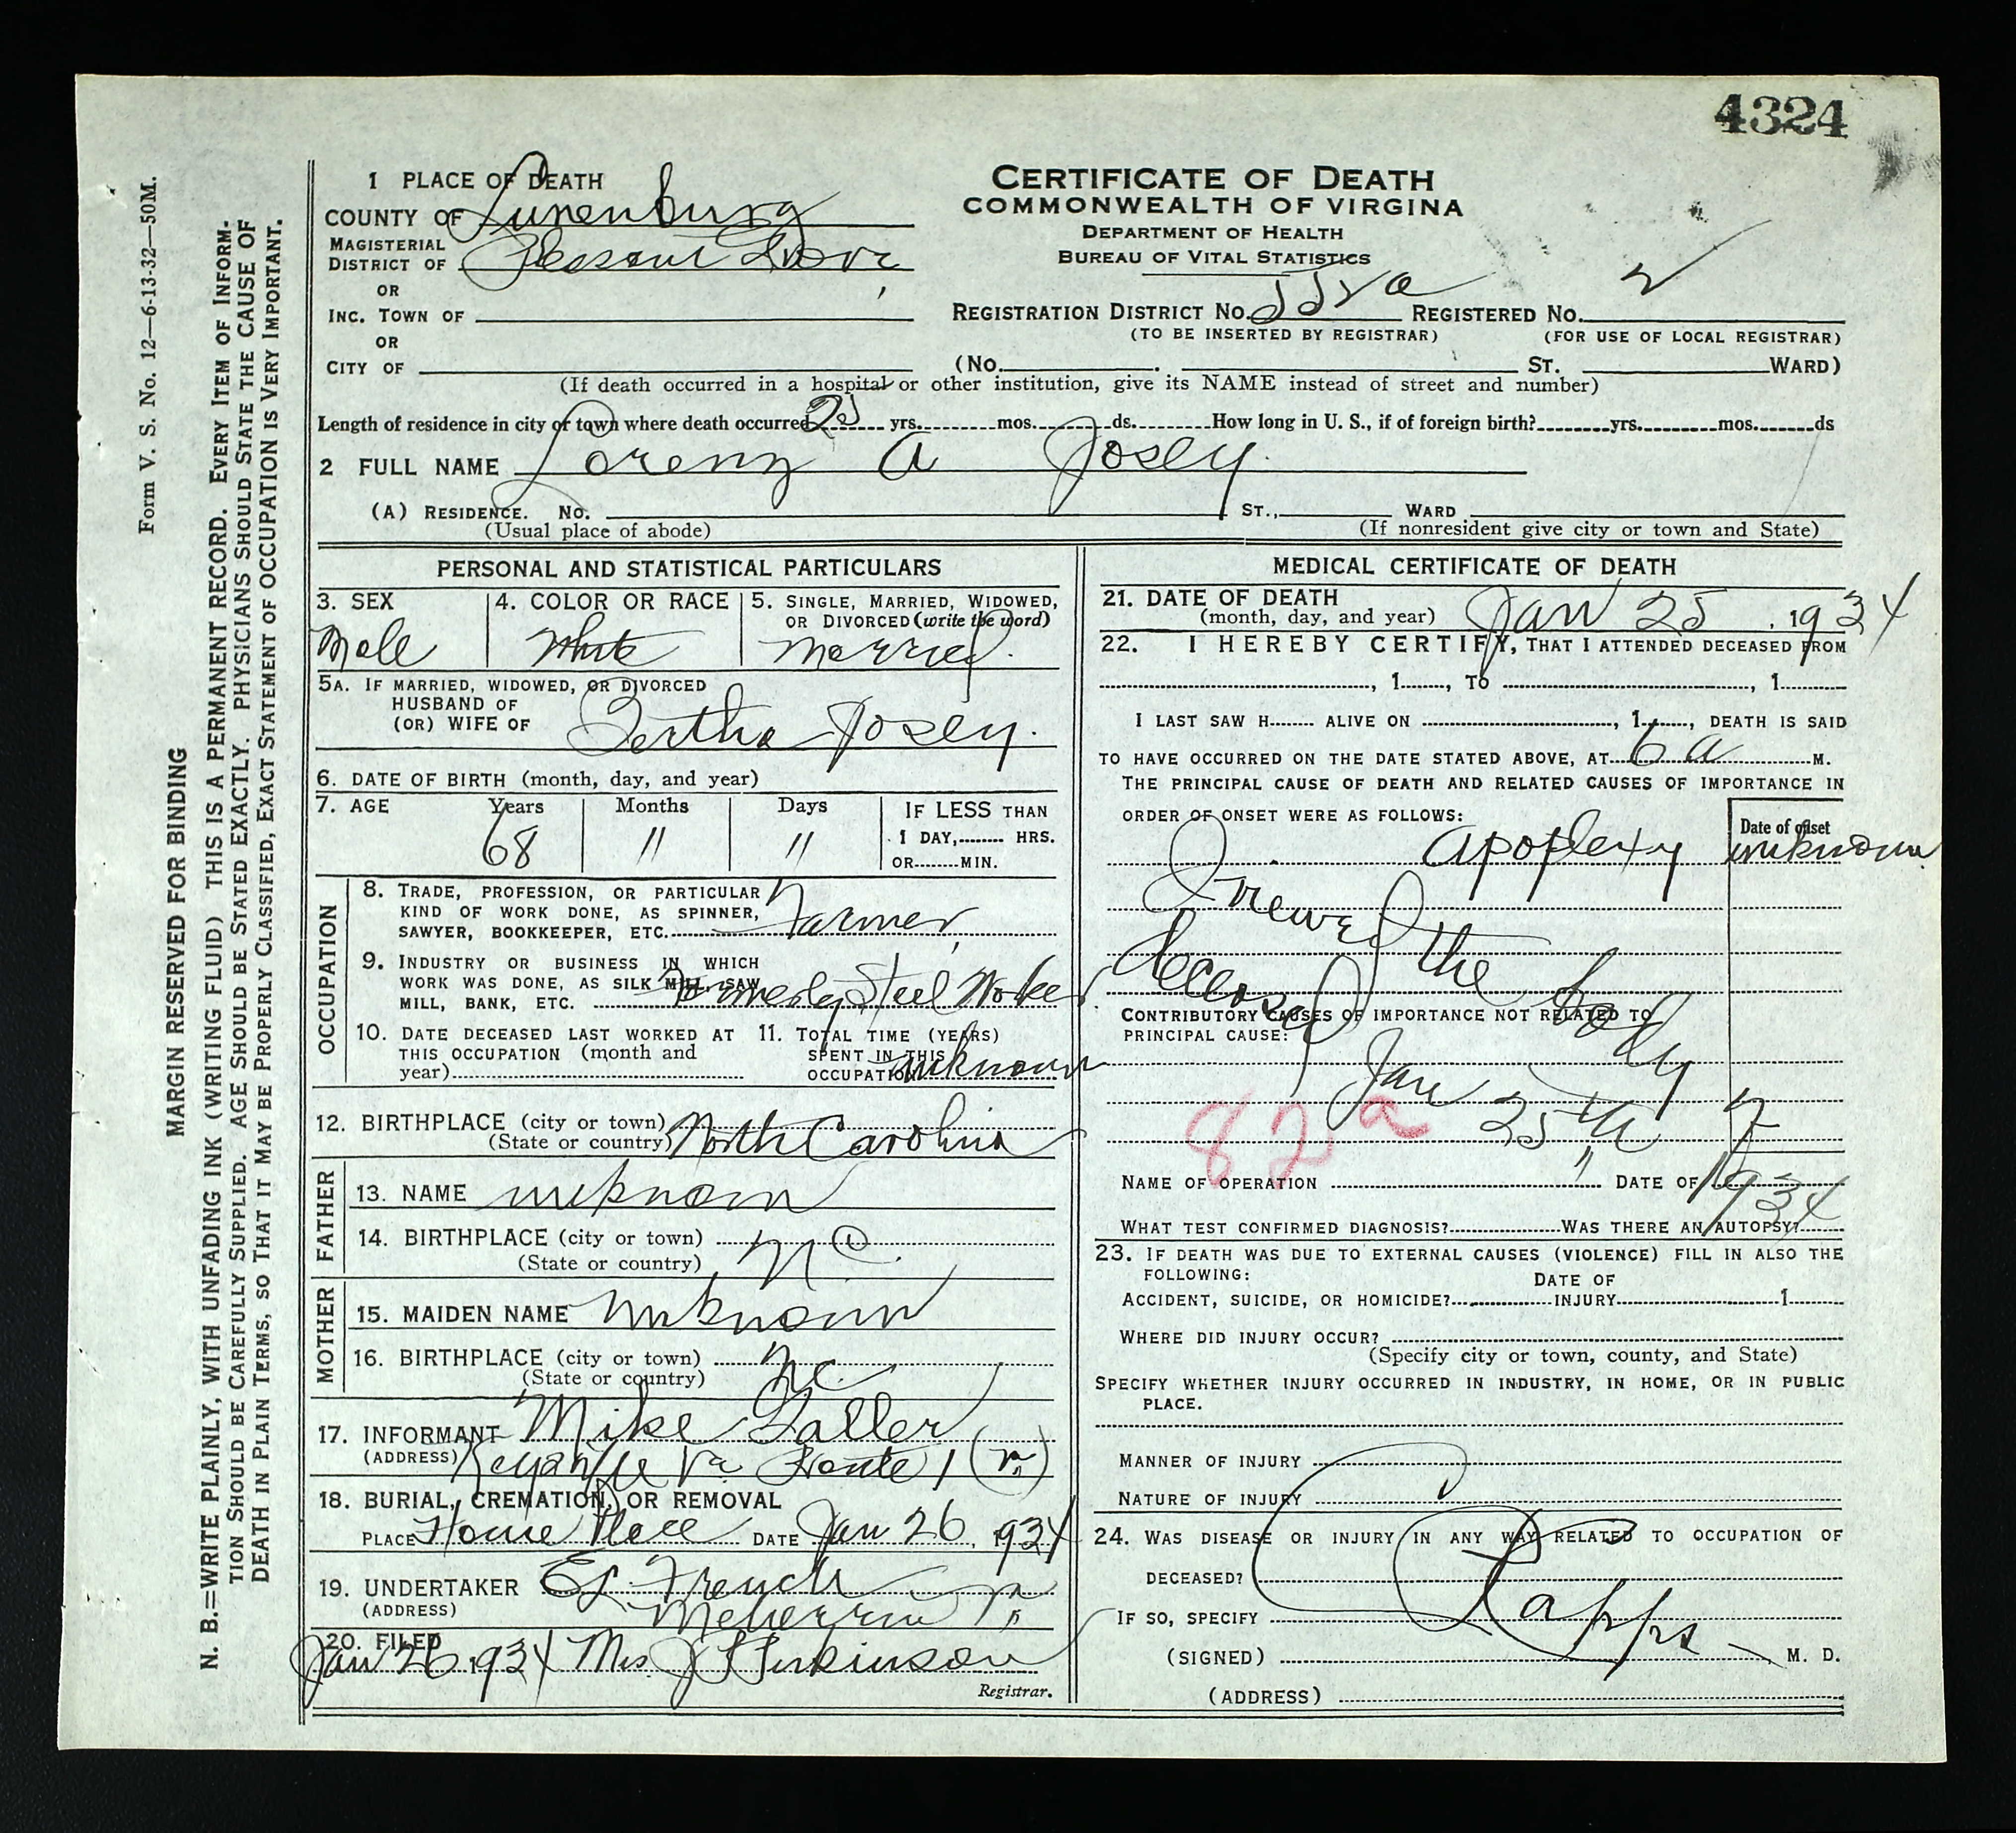 4324
1 PLACE OF DEATH
COUNTY OF Lunenburg
MAGISTERIAL DISTRICT OF Pleasant Grove
OR
INC. TOWN OF
OR
CITY OF
CERTIFICATE OF DEATH
COMMONWEALTH OF VIRGINA
DEPARTMENT OF HEALTH
BUREAU OF VITAL STATISTICS
REGISTRATION DISTRICT No. REGISTERED No. 2
(TO BE INSERTED BY REGISTRAR) (FOR USE OF LOCAL REGISTRAR)
(No. ST. WARD)
(If death occurred in a hospital or other institution, give its NAME instead of street and number)
Length of residence in city or town where death occurred 25 yrs. mos. ds. How long in U. S., if of foreign birth? yrs. mos. ds
2 FULL NAME Lorenz A Josey
(A) RESIDENCE. No. ST., WARD
(Usual place of abode) (If nonresident give city or town and State)
PERSONAL AND STATISTICAL PARTICULARS
3. SEX 4. COLOR OR RACE 5. SINGLE, MARRIED, WIDOWED,
OR DIVORCED (write the word)
Male White Married.
5A. IF MARRIED, WIDOWED, OR DIVORCED
HUSBAND OF
(OR) WIFE OF Bertha Josey.
6. DATE OF BIRTH (month, day, and year)
7. AGE Years Months Days IF LESS THAN
68 11 11 1 DAY, HRS.
OR MIN.
OCCUPATION
8. TRADE, PROFESSION, OR PARTICULAR
KIND OF WORK DONE, AS SPINNER,
SAWYER, BOOKKEEPER, ETC. Farmer
9. INDUSTRY OR BUSINESS IN WHICH
WORK WAS DONE, AS SILK MILL, SAW
MILL, BANK, ETC. Formerly Steel Worker
10. DATE DECEASED LAST WORKED AT
THIS OCCUPATION (month and
year)
11. TOTAL TIME (YEARS)
SPENT IN THIS
OCCUPATION unknown
12. BIRTHPLACE (city or town)
(State or country) North Carolina
FATHER
13. NAME unknown
14. BIRTHPLACE (city or town)
(State or country) N C.
MOTHER
15. MAIDEN NAME unknown
16. BIRTHPLACE (city or town)
(State or country) NC
17. INFORMANT Mike
(ADDRESS) Va Route 1
18. BURIAL, CREMATION, OR REMOVAL
PLACE Home Place DATE Jan 26, 1934
19. UNDERTAKER French
(ADDRESS) Meherrin
20. FILED
Jan 26 1934 Mrs J
Registrar.
MEDICAL CERTIFICATE OF DEATH
21. DATE OF DEATH
(month, day, and year) Jan 25, 1934
22. I HEREBY CERTIFY, THAT I ATTENDED DECEASED FROM
, 1 , TO , 1
I LAST SAW H ALIVE ON , 1 , DEATH IS SAID
TO HAVE OCCURRED ON THE DATE STATED ABOVE, AT 6 a M.
THE PRINCIPAL CAUSE OF DEATH AND RELATED CAUSES OF IMPORTANCE IN
ORDER OF ONSET WERE AS FOLLOWS:
Date of onset
apoplexy unknown
I viewed the body
deceased
CONTRIBUTORY CAUSES OF IMPORTANCE NOT RELATED TO
PRINCIPAL CAUSE:
Jan 25th
82 a
1934
NAME OF OPERATION DATE OF
WHAT TEST CONFIRMED DIAGNOSIS? WAS THERE AN AUTOPSY?
23. IF DEATH WAS DUE TO EXTERNAL CAUSES (VIOLENCE) FILL IN ALSO THE
FOLLOWING:
DATE OF
ACCIDENT, SUICIDE, OR HOMICIDE? INJURY 1
WHERE DID INJURY OCCUR?
(Specify city or town, county, and State)
SPECIFY WHETHER INJURY OCCURRED IN INDUSTRY, IN HOME, OR IN PUBLIC
PLACE.
MANNER OF INJURY
NATURE OF INJURY
24. WAS DISEASE OR INJURY IN ANY WAY RELATED TO OCCUPATION OF
DECEASED?
IF SO, SPECIFY
(SIGNED) M. D.
(ADDRESS)
Form V. S. No. 12—6-13-32—50M.
MARGIN RESERVED FOR BINDING
N. B.=WRITE PLAINLY, WITH UNFADING INK (WRITING FLUID) THIS IS A PERMANENT RECORD. EVERY ITEM OF INFORM-
TION SHOULD BE CAREFULLY SUPPLIED. AGE SHOULD BE STATED EXACTLY. PHYSICIANS SHOULD STATE THE CAUSE OF
DEATH IN PLAIN TERMS, SO THAT IT MAY BE PROPERLY CLASSIFIED, EXACT STATEMENT OF OCCUPATION IS VERY IMPORTANT.